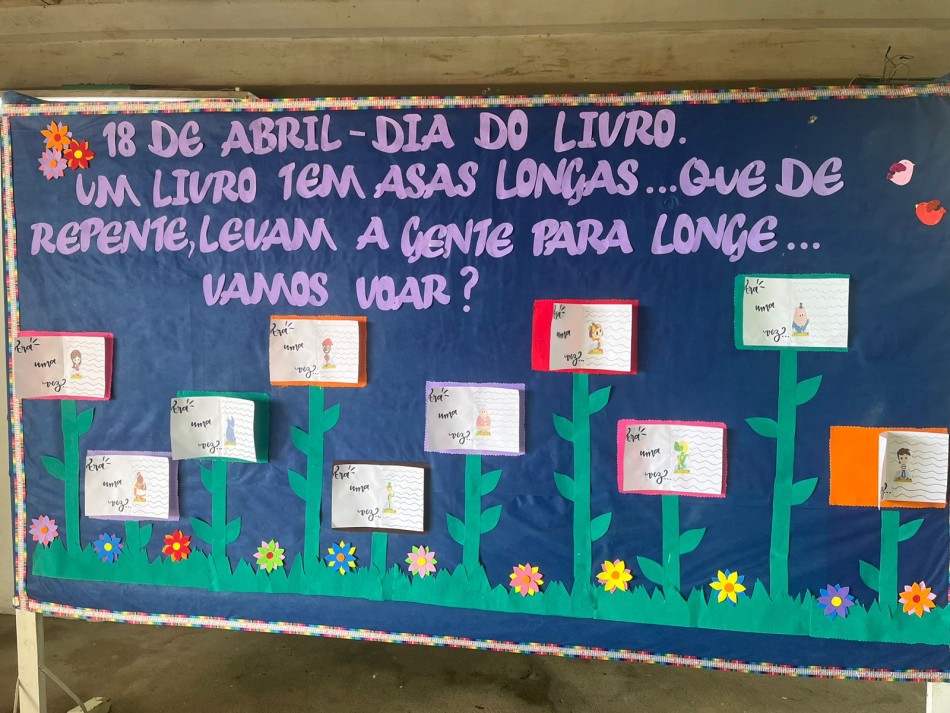 18 DE ABRIL - DIA DO LIVRO.
UM LIVRO TEM ASAS LONGAS ... QUE DE
REPENTE, LEVAM A GENTE PARA LONGE ...
VAMOS VOAR?
Era
uma
vez...
Era
uma
vez...
Era
uma
vez...
Era
uma
vez...
Era
uma
vez...
Era
uma
vez...
Era
uma
vez...
Era
uma
vez...
Era
uma
vez...